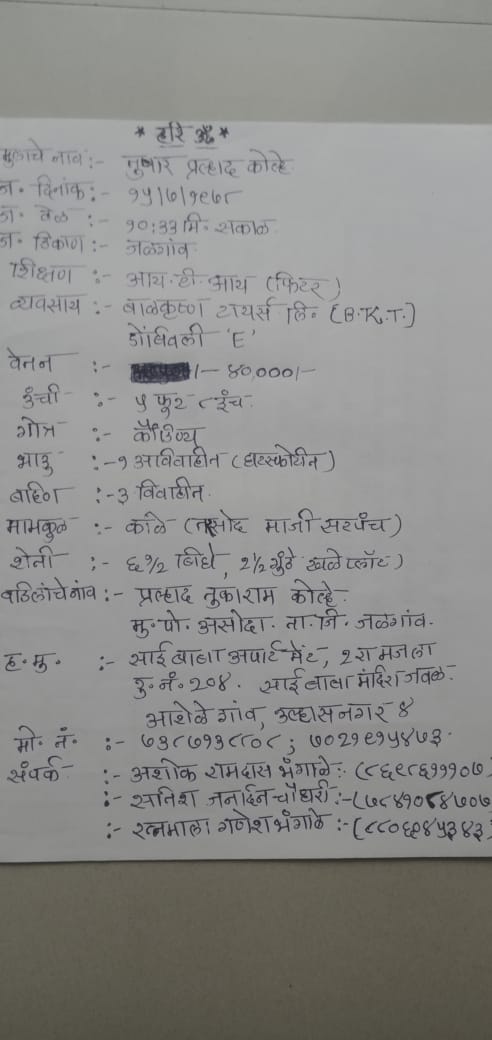 * हरि ॐ *
मुलाचे नाव :- तुषार प्रल्हाद कोल्हे
ज. दिनांक :- १५/७/१९७८
ज. वेळ :- १०:३३ मि. सकाळ
ज. ठिकाण :- जळगांव
शिक्षण :- आय. टी. आय (फिटर)
व्यवसाय :- बाळकृष्ण टायर्स लि. (B.K.T.)
डोंबिवली 'E'
वेतन :- /- ४०,०००/-
उंची :- ५ फुट ८ इंच
गोत्र :- कौंडिण्य
भाऊ :- १ अविवाहीत
बहिण :- ३ विवाहीत.
मामकुळ :- काळे (नसोद माजी सरपंच)
शेती :- ६ १/२ बिघे, २ १/२ गुंठे खळे प्लॉट)
वडिलांचे नांव :- प्रल्हाद तुकाराम कोल्हे.
मु. पो. असोदा. ता. जि. जळगांव.
ह. मु. :- साई बाबा अपार्टमेंट, २ रा मजला
रु. नं. २०४. साई बाबा मंदिरा जवळ.
आशेळे गांव, उल्हासनगर ४
मो. नं. :- ७३८७१३८८०८ ; ७०२१९१५४७३.
संपर्क :- अशोक रामदास भंगाळे :- (८६९८६१११०७)
:- सतिश जनार्दन चौधरी :- (७८४१०८४७०७
:- रत्नमाला गणेश भंगाळे :- (८८०६२४५३४३)